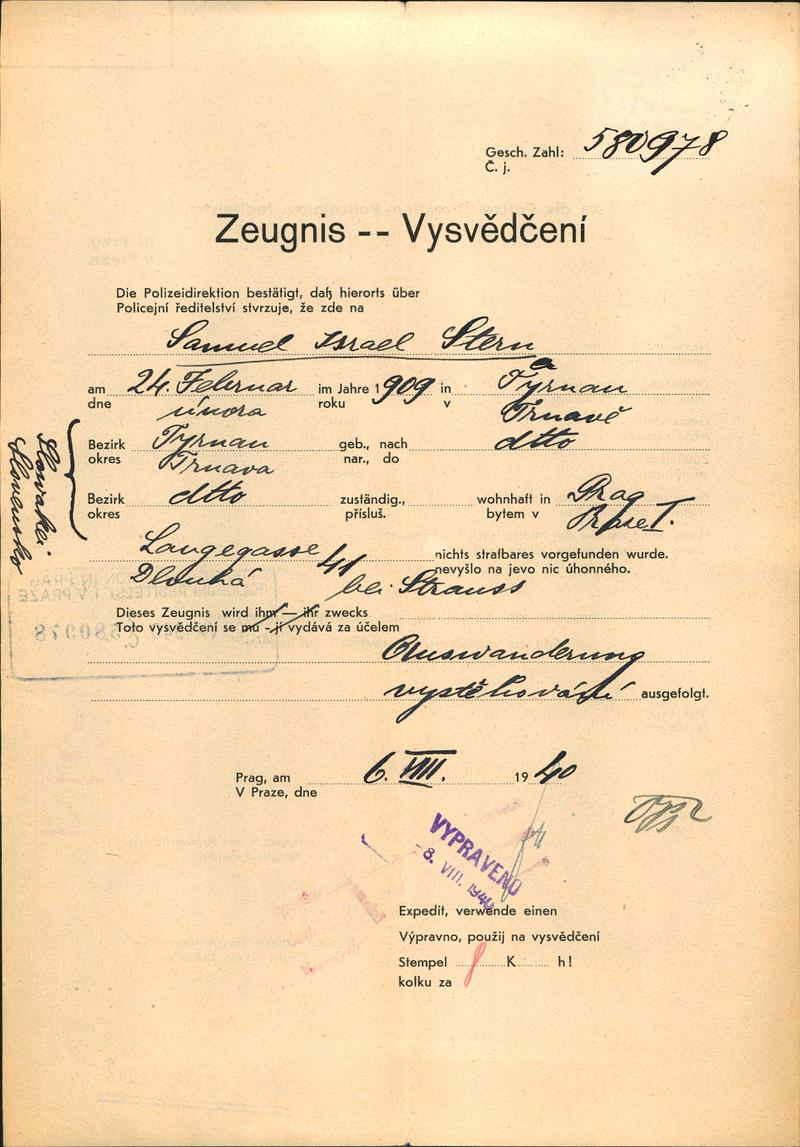 Gesch. Zahl: 580978
Č. j.
Zeugnis -- Vysvědčení
Die Polizeidirektion bestätigt, daß hierorts über
Policejní ředitelství stvrzuje, že zde na
Samuel Israel Stern
am 24. Februar im Jahre 1909 in Tyrnau
dne února roku v Trnavě
Bezirk Tyrnau geb., nach dtto
okres Trnava nar., do
Bezirk dtto zuständig., wohnhaft in Prag
okres přísluš. bytem v Praze I.
Slowakei
Slovensko
Langegasse 41 nichts strafbares vorgefunden wurde.
Dlouhá nevyšlo na jevo nic úhonného.
bei Strauss
Dieses Zeugnis wird ihm — ihr zwecks
Toto vysvědčení se mu - jí vydává za účelem
Auswanderung
vystěhování ausgefolgt.
Prag, am 6. VIII. 1940
V Praze, dne
VYPRAVENO
- 8. VIII. 1940
Expedit, verwende einen
Výpravno, použij na vysvědčení
Stempel K h!
kolku za